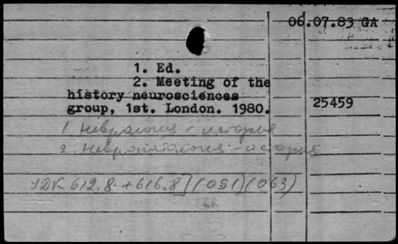 06.07.83 GA
1. Ed.
2. Meeting of the
history neurosciences
group, 1st. London. 1980.
25459
1. Неврология - история
2. Невропатология - история
УДК 612.8+616.8](091)(063)